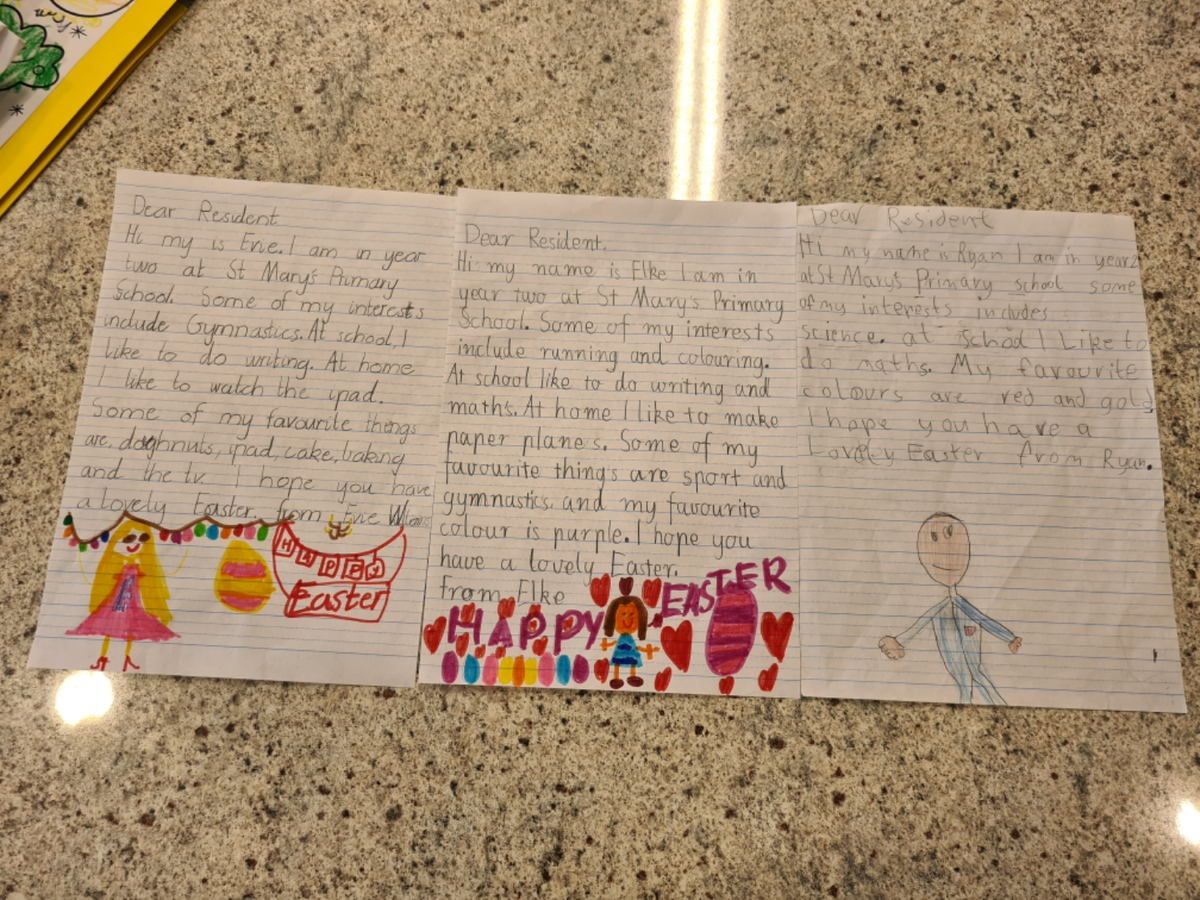 Dear Resident
Hi my is Evie. I am in year
two at St Mary's Primary
School. Some of my interests
include Gymnastics. At school, I
like to do writing. At home
I like to watch the ipad.
Some of my favourite things
are. doughnuts, ipad, cake, baking
and the tv. I hope you have
a lovely Easter. from Evie
HAPPY
Easter
Dear Resident.
Hi my name is Elke I am in
year two at St Mary's Primary
School. Some of my interests
include running and colouring.
At school like to do writing and
maths. At home I like to make
paper planes. Some of my
favourite things are sport and
gymnastics. and my favourite
colour is purple. I hope you
have a lovely Easter.
from Elke
HAPPY EASTER
Dear Resident
Hi my name is Ryan I am in year 2
at St Mary's Primary school some
of my interests includes
science. at school I Like to
do maths. My favourite
colours are red and gold
I hope you have a
Lovely Easter from Ryan.